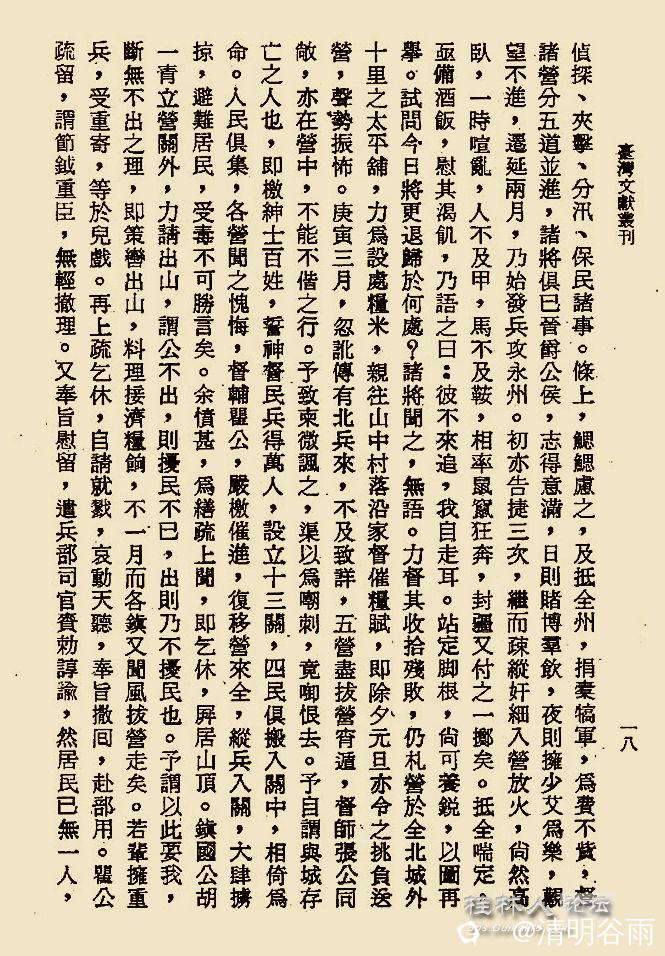 臺灣文獻叢刊
一八
偵探、夾擊、分汛、保民諸事。條上,鰓鰓慮之,及抵全州,捐棄犒軍,爲費不貲,督
諸營分五道並進,諸將俱已晉爵公侯,志得意滿,日則賭博羣飲,夜則擁少艾爲樂,觀
望不進,遷延兩月,乃始發兵攻永州。初亦告捷三次,繼而疎縱奸細入營放火,尙然高
臥,一時喧亂,人不及甲,馬不及鞍,相率鼠竄狂奔,封疆又付之一擲矣。抵全喘定,
亟備酒飯,慰其渴飢,乃語之曰:彼不來追,我自走耳。站定脚根,尙可養銳,以圖再
擧。試問今日將更退歸於何處?諸將聞之,無語。力督其收拾殘敗,仍札營於全北城外
十里之太平舖,力爲設處糧米,親往山中村落沿家督催糧賦,即除夕元旦亦令之挑負送
營,聲勢振怖。庚寅三月,忽訛傳有北兵來,不及致詳,五營盡拔營宵遁,督師張公同
敵,亦在營中,不能不偕之行。予致柬微諷之,渠以爲嘲刺,竟啣恨去。予自謂與城存
亡之人也,即檄紳士百姓,誓神督民兵得萬人,設立十三關,四民俱搬入關中,相倚爲
命。人民俱集,各營聞之愧悔,督輔瞿公,嚴檄催進,復移營來全,縱兵入關,大肆擄
掠,避難居民,受毒不可勝言矣。余憤甚,爲繕疏上聞,即乞休,屛居山頂。鎭國公胡
一青立營關外,力請出山,謂公不出,則擾民不已,出則乃不擾民也。予謂以此要我,
斷無不出之理,即策轡出山,料理接濟糧餉,不一月而各鎭又聞風拔營走矣。若輩擁重
兵,受重寄,等於兒戲。再上疏乞休,自請就戮,哀動天聽,奉旨撤回,赴部用。瞿公
疏留,謂節鉞重臣,無輕撤理。又奉旨慰留,遣兵部司官賫勅諄諭,然居民已無一人,
桂林人论坛
@清明谷雨